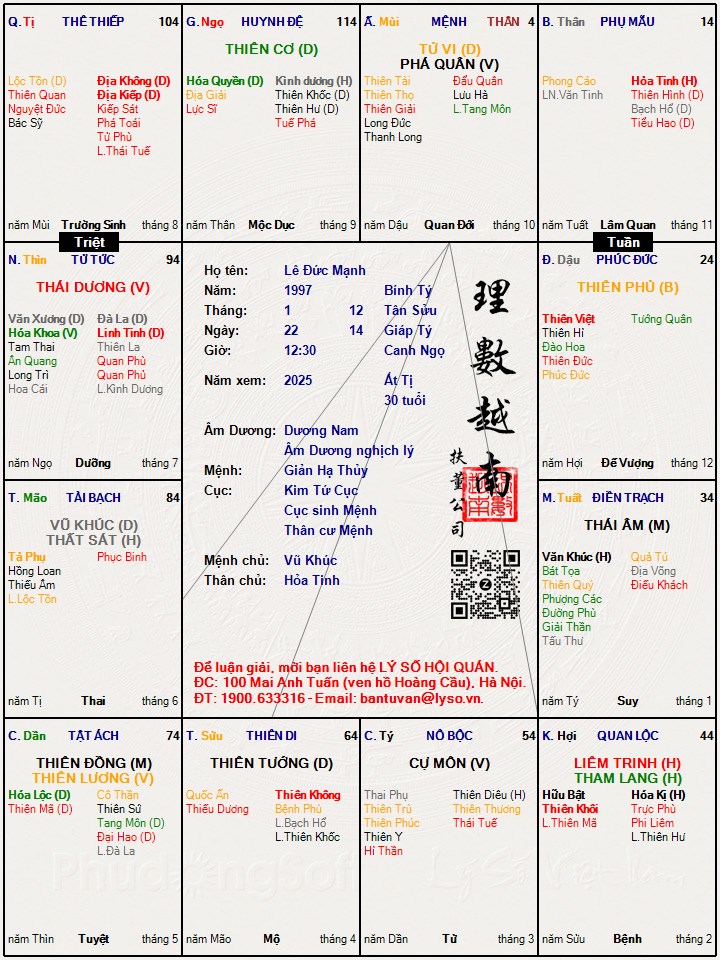 Q. Tị THÊ THIẾP 104
Lộc Tồn (D) Địa Không (D)
Thiên Quan Địa Kiếp (D)
Nguyệt Đức Kiếp Sát
Bác Sỹ Phá Toái
Tử Phù
L.Thái Tuế
năm Mùi Trường Sinh tháng 8
G. Ngọ HUYNH ĐỆ 114
THIÊN CƠ (D)
Hóa Quyền (D) Kình dương (H)
Địa Giải Thiên Khốc (D)
Lực Sĩ Thiên Hư (D)
Tuế Phá
năm Thân Mộc Dục tháng 9
Ấ. Mùi MỆNH THÂN 4
TỬ VI (D)
PHÁ QUÂN (V)
Thiên Tài Đẩu Quân
Thiên Thọ Lưu Hà
Thiên Giải L.Tang Môn
Long Đức
Thanh Long
năm Dậu Quan Đới tháng 10
B. Thân PHỤ MẪU 14
Phong Cáo Hỏa Tinh (H)
LN.Văn Tinh Thiên Hình (D)
Bạch Hổ (D)
Tiểu Hao (D)
năm Tuất Lâm Quan tháng 11
Triệt
Tuần
N. Thìn TỬ TỨC 94
THÁI DƯƠNG (V)
Văn Xương (D) Đà La (D)
Hóa Khoa (V) Linh Tinh (D)
Tam Thai Thiên La
Ân Quang Quan Phù
Long Trì Quan Phủ
Hoa Cái L.Kình Dương
năm Ngọ Dưỡng tháng 7
Họ tên: Lê Đức Mạnh
Năm: 1997 Bính Tý
Tháng: 1 12 Tân Sửu
Ngày: 22 14 Giáp Tý
Giờ: 12:30 Canh Ngọ
Năm xem: 2025 Ất Tị
30 tuổi
Âm Dương: Dương Nam
Âm Dương nghịch lý
Mệnh: Giản Hạ Thủy
Cục: Kim Tứ Cục
Cục sinh Mệnh
Thân cư Mệnh
Mệnh chủ: Vũ Khúc
Thân chủ: Hỏa Tinh
理數越南
扶董公司
Z
Để luận giải, mời bạn liên hệ LÝ SỐ HỘI QUÁN.
ĐC: 100 Mai Anh Tuấn (ven hồ Hoàng Cầu), Hà Nội.
ĐT: 1900.633316 - Email: bantuvan@lyso.vn.
Đ. Dậu PHÚC ĐỨC 24
THIÊN PHỦ (B)
Thiên Việt Tướng Quân
Thiên Hỉ
Đào Hoa
Thiên Đức
Phúc Đức
năm Hợi Đế Vượng tháng 12
T. Mão TÀI BẠCH 84
VŨ KHÚC (D)
THẤT SÁT (H)
Tả Phụ Phục Binh
Hồng Loan
Thiếu Âm
L.Lộc Tồn
năm Tị Thai tháng 6
M. Tuất ĐIỀN TRẠCH 34
THÁI ÂM (M)
Văn Khúc (H) Quả Tú
Bát Tọa Địa Võng
Thiên Quý Điếu Khách
Phượng Các
Đường Phù
Giải Thần
Tấu Thư
năm Tý Suy tháng 1
C. Dần TẬT ÁCH 74
THIÊN ĐỒNG (M)
THIÊN LƯƠNG (V)
Hóa Lộc (D) Cô Thần
Thiên Mã (D) Thiên Sứ
Tang Môn (D)
Đại Hao (D)
L.Đà La
năm Thìn Tuyệt tháng 5
T. Sửu THIÊN DI 64
THIÊN TƯỚNG (D)
Quốc Ấn Thiên Không
Thiếu Dương Bệnh Phù
L.Bạch Hổ
L.Thiên Khốc
năm Mão Mộ tháng 4
C. Tý NÔ BỘC 54
CỰ MÔN (V)
Thai Phụ Thiên Diêu (H)
Thiên Trù Thiên Thương
Thiên Phúc Thái Tuế
Thiên Y
Hỉ Thần
năm Dần Tử tháng 3
K. Hợi QUAN LỘC 44
LIÊM TRINH (H)
THAM LANG (H)
Hữu Bật Hóa Kị (H)
Thiên Khôi Trực Phù
L.Thiên Mã Phi Liêm
L.Thiên Hư
năm Sửu Bệnh tháng 2
PhudongSoft
Lý Số Việt Nam